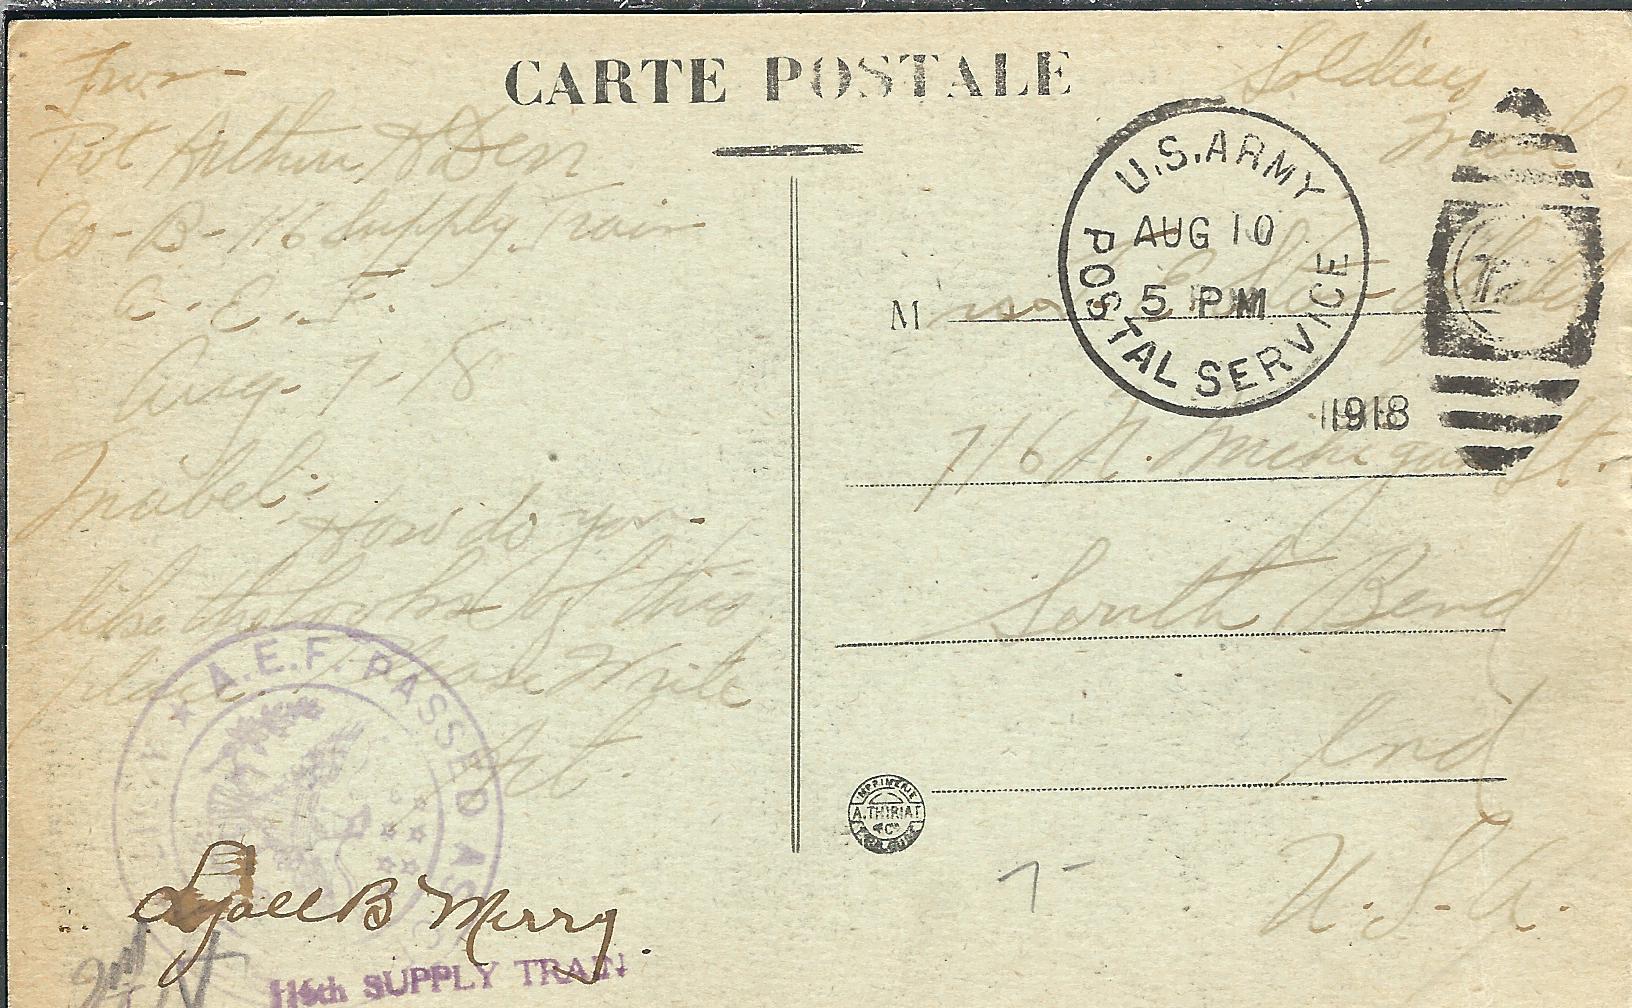 CARTE POSTALE
From
Pvt Arthur
Co-B-116 Supply Train
A. E. F.
Aug-7-18
Mabel:-
How do you
like the looks of this
place. Please Write
Art.
A.E.F. PASSED AS
Lyall B Merry.
2nd Lt
116th SUPPLY TRAIN
Soldiers
Mail
U.S. ARMY
POSTAL SERVICE
AUG 10
5 PM
1918
M iss
716 N. Michigan St.
South Bend
Ind
U.S.A.
IMPRIMERIE
A. THIRIAT
& Cie
7-